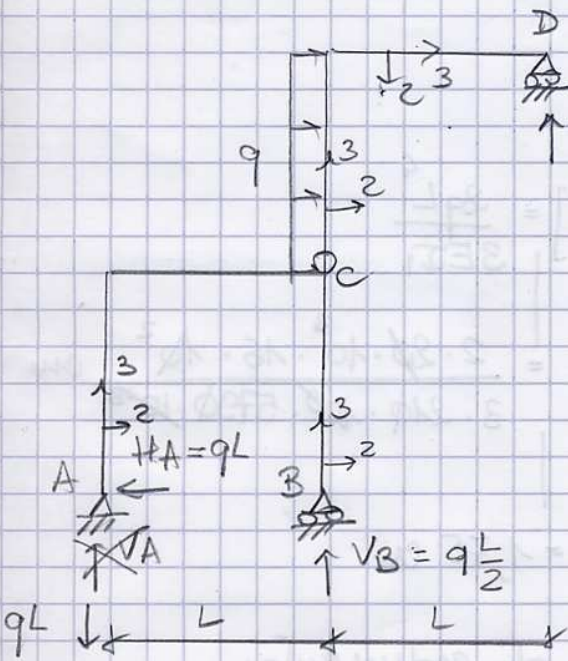 D
2 3
q
3
2
C
3
2
H_A = qL
3
2
A
B
V_A
V_B = q L/2
qL
L
L